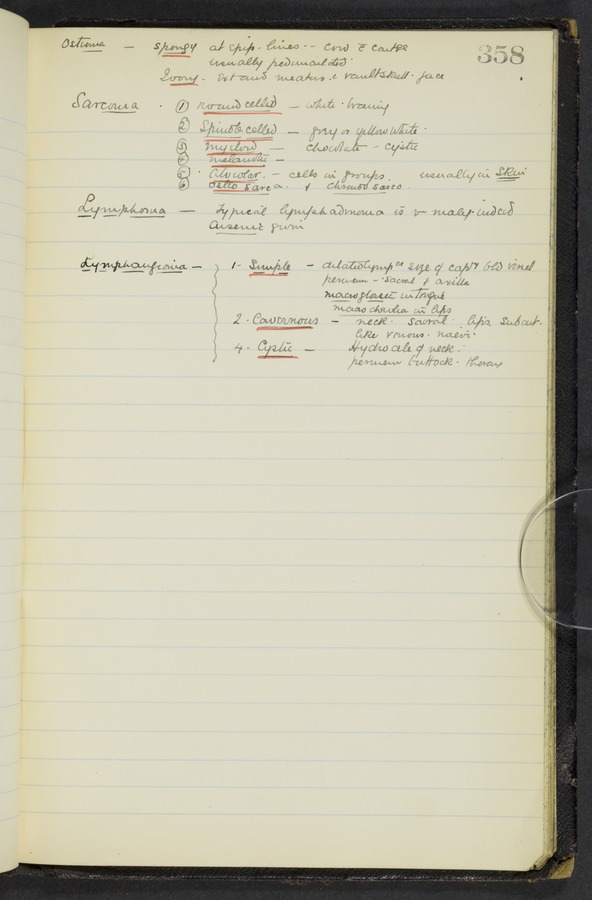 358
Osteoma — spongy at epip. lines -- cov'd c̄ cartge
usually pedunculated
Ivory. Ext aud meatus. vault skull. face
Sarcoma . ① round celled — white. brainy
② Spindle celled — grey or yellow white.
③ myeloid — chocolate - cystic
④ melanotic —
⑤ Alveolar. — cells in groups. usually in Skin
⑥ osteo sarca. & chondro sarco.
Lymphoma — Typical lymphadenoma is v malig indeed
Arsenic given
Lymphangioma — 1- Simple — size of capy bld vessel
perineum - Sacral & axilla
macroglossia in tongue
macrocheilia in lips
2. Cavernous — neck. sacral. lips Subcut.
like venous. naevi.
4. Cystic — Hydrocele of neck.
perineum buttock. thorax